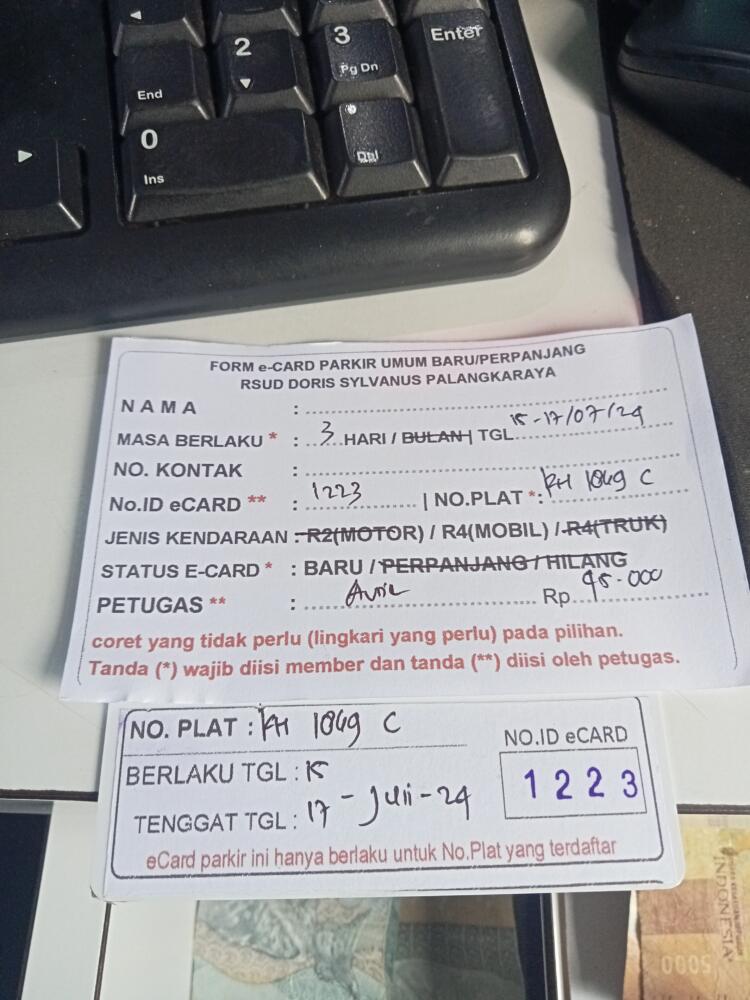 2
3
Enter
End
Pg Dn
0
Ins
Del
FORM e-CARD PARKIR UMUM BARU/PERPANJANG
RSUD DORIS SYLVANUS PALANGKARAYA
NAMA :
MASA BERLAKU * : 3 HARI / BULAN | TGL 15-17/07/24
NO. KONTAK :
No.ID eCARD ** : 1223 | NO.PLAT *: KH 1849 C
JENIS KENDARAAN : R2(MOTOR) / R4(MOBIL) / R4(TRUK)
STATUS E-CARD * : BARU / PERPANJANG / HILANG
PETUGAS ** : Rp 45.000
coret yang tidak perlu (lingkari yang perlu) pada pilihan.
Tanda (*) wajib diisi member dan tanda (**) diisi oleh petugas.
NO. PLAT : KH 1849 C
NO.ID eCARD
1223
BERLAKU TGL : 15
TENGGAT TGL : 17 - Juli - 24
eCard parkir ini hanya berlaku untuk No.Plat yang terdaftar
INDONESIA
5000